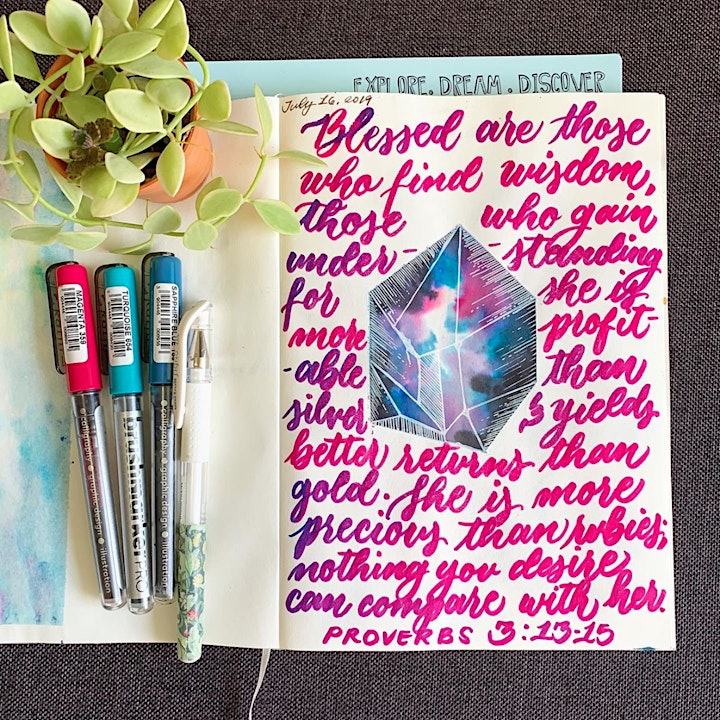 EXPLORE. DREAM. DISCOVER
July 16, 2019
Blessed are those
who find wisdom,
those who gain
under- -standing
for she is
more profit-
-able than
silver & yields
better returns than
gold. She is more
precious than rubies;
nothing you desire
can compare with her.
PROVERBS 3:13-15
MAGENTA 358
TURQUOISE 654
SAPPHIRE BLUE
calligraphy • graphic design • illustration
brushmarkerPRO
calligraphy • graphic design • illustration